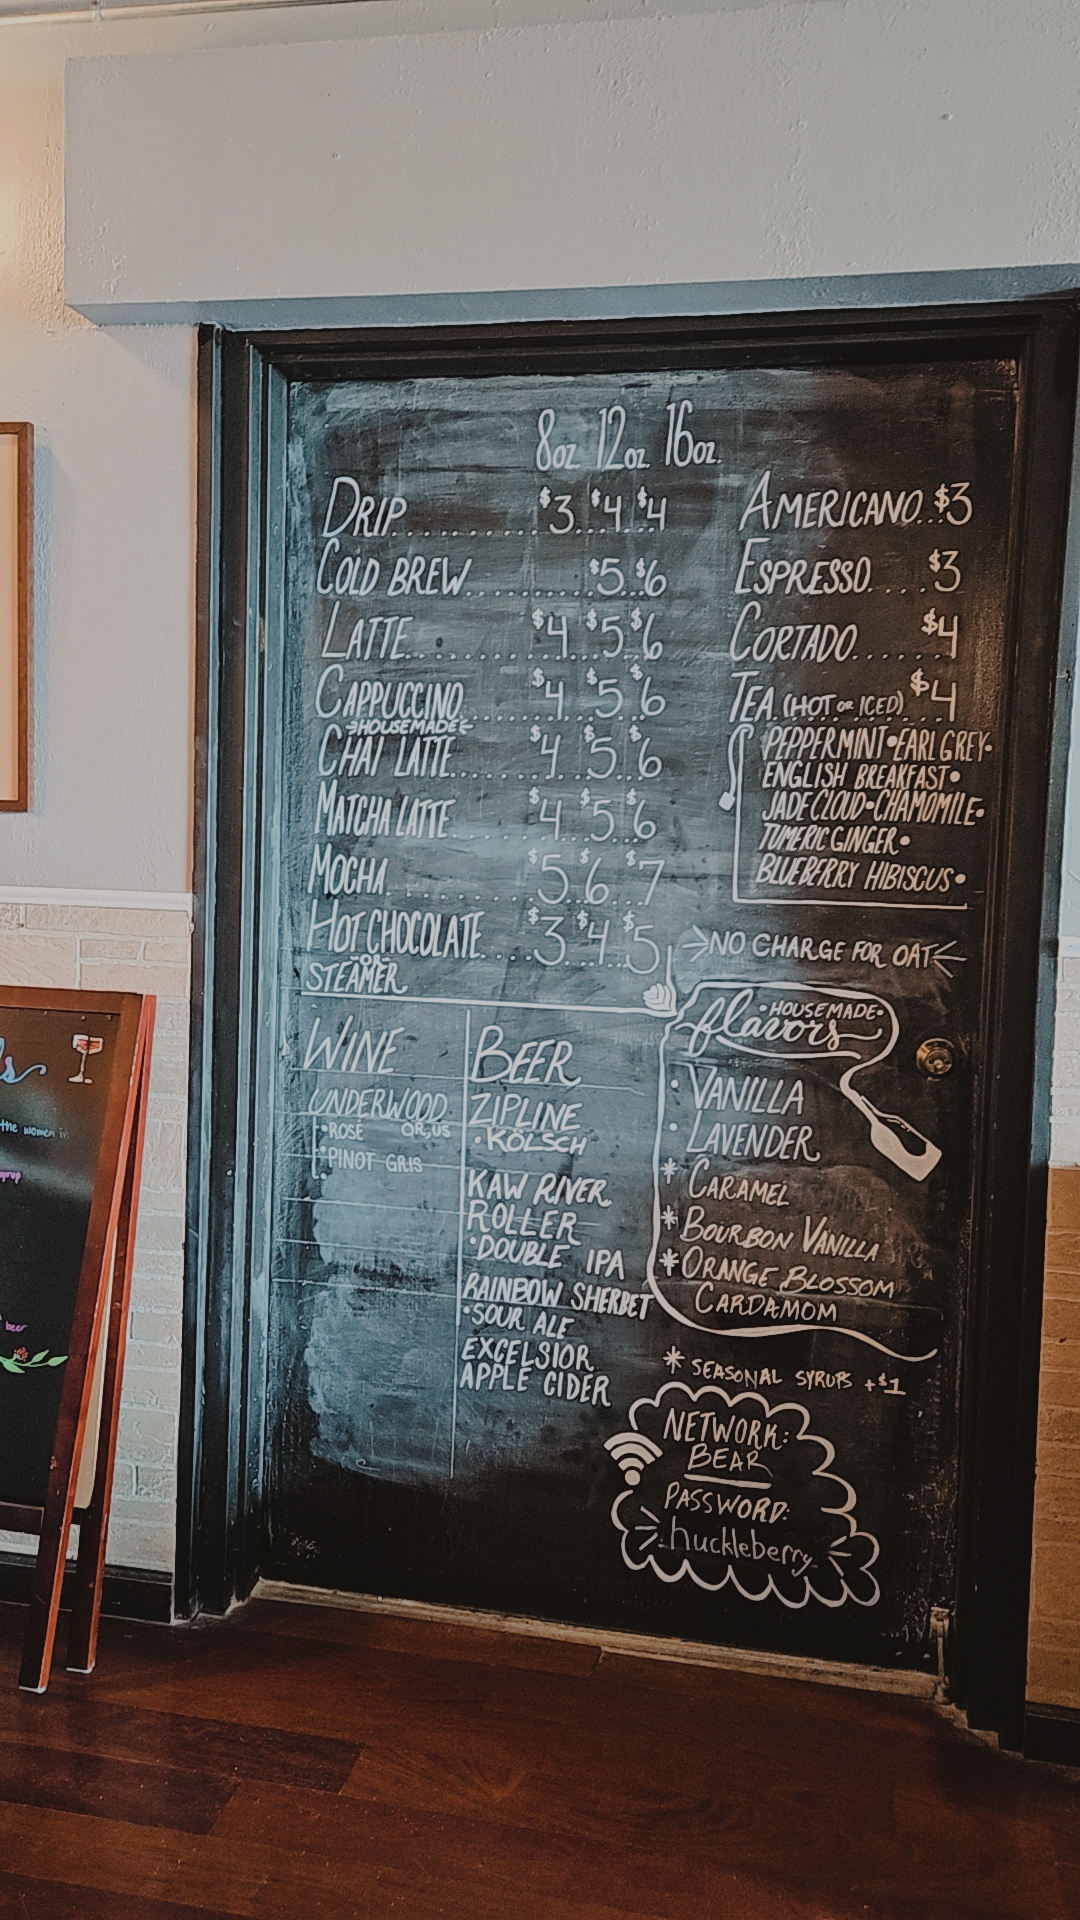 8oz 12oz. 16oz.
DRIP.......... $3...$4..$4
COLD BREW.......... $5...$6
LATTE.......... $4 $5 $6
CAPPUCCINO....... $4 $5 $6
HOUSEMADE
CHAI LATTE....... $4 $5 $6
MATCHA LATTE....... $4 $5 $6
MOCHA.......... $5 $6 $7
HOT CHOCOLATE.... $3 $4 $5
OR
STEAMER
AMERICANO...$3
ESPRESSO.....$3
CORTADO......$4
TEA (HOT OR ICED) $4
PEPPERMINT•EARL GREY•
ENGLISH BREAKFAST•
JADE CLOUD•CHAMOMILE•
TUMERIC GINGER•
BLUEBERRY HIBISCUS•
NO CHARGE FOR OAT
•HOUSEMADE•
flavors
• VANILLA
• LAVENDER
* CARAMEL
* BOURBON VANILLA
* ORANGE BLOSSOM
CARDAMOM
* SEASONAL SYRUPS +$1
WINE
UNDERWOOD
•ROSÉ OR, US
•PINOT GRIS
BEER
ZIPLINE
•KÖLSCH
KAW RIVER
ROLLER
•DOUBLE IPA
RAINBOW SHERBET
•SOUR ALE
EXCELSIOR
APPLE CIDER
NETWORK:
BEAR
PASSWORD:
huckleberry
the women in
beer